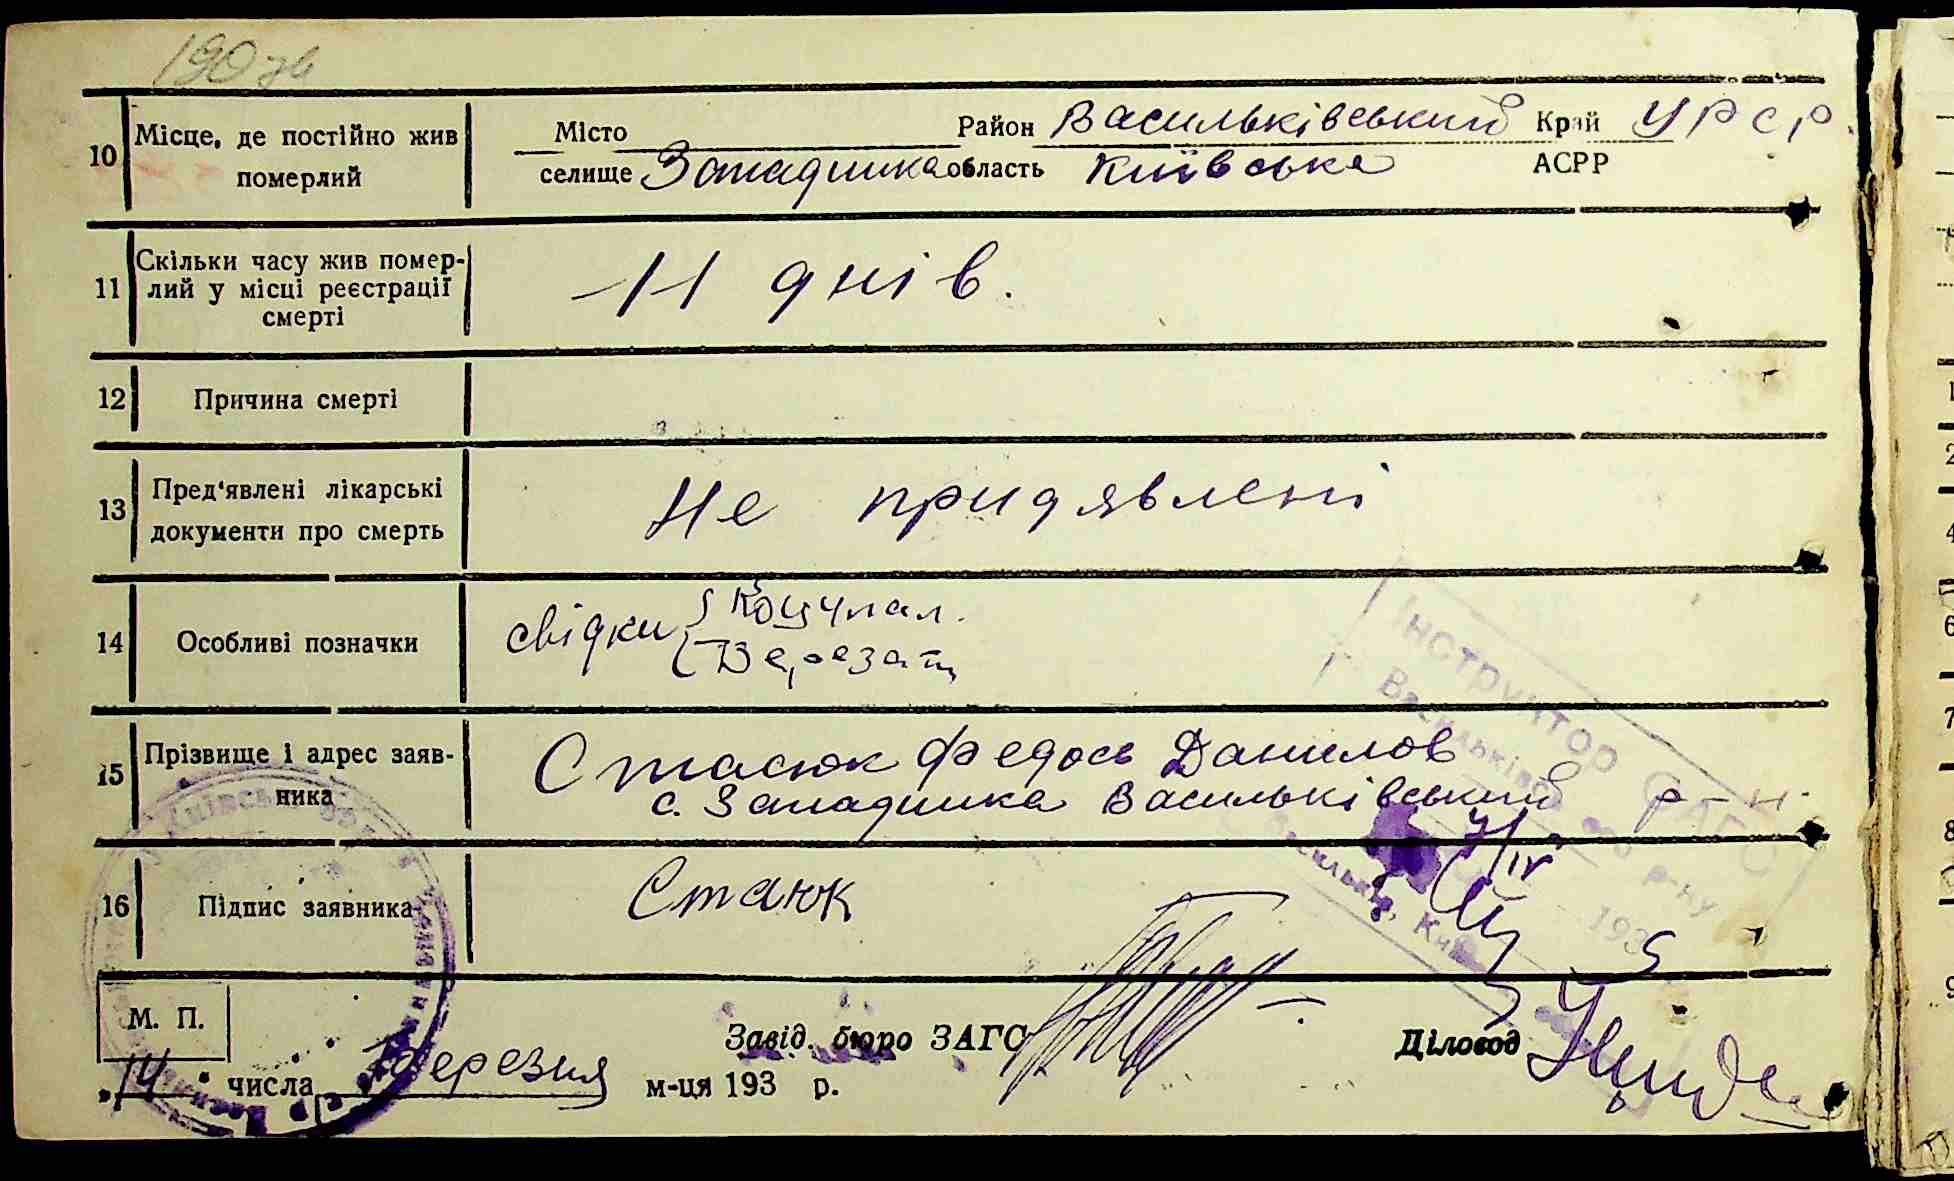 190 зв
10 Місце, де постійно жив померлий
Місто Район Васильківський Край УРСР.
селище Западинка область Київська АСРР
11 Скільки часу жив помер-
лий у місці реєстрації
смерті
11 днів.
12 Причина смерті
13 Пред‘явлені лікарські
документи про смерть
Не придявлені
14 Особливі позначки
свідки
15 Прізвище і адрес заяв-
ника
Стасюк Федось Данилов
с. Западинка Васильківський р-н.
7/IV
16 Підпис заявника
Стаюк
Інструктор ЗАГС
Васильківського р-ну
Васильків, Київ 1935
М. П.
Завід. бюро ЗАГС
Діловод
„14“ числа Березня м-ця 193 р.